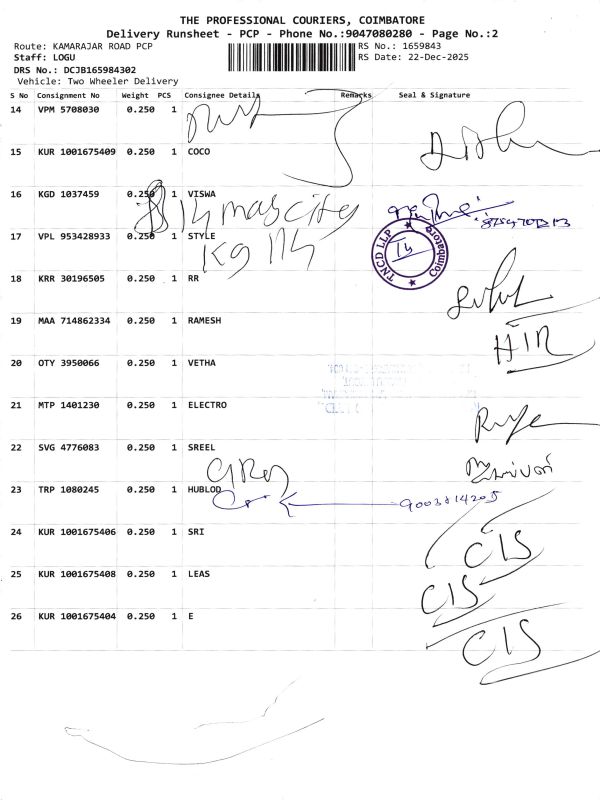 THE PROFESSIONAL COURIERS, COIMBATORE
Delivery Runsheet - PCP - Phone No.:9047080280 - Page No.:2
Route: KAMARAJAR ROAD PCP
RS No.: 1659843
Staff: LOGU
RS Date: 22-Dec-2025
DRS No.: DCJB165984302
Vehicle: Two Wheeler Delivery
S No Consignment No Weight PCS Consignee Details Remarks Seal & Signature
14 VPM 5708030 0.250 1
15 KUR 1001675409 0.250 1 COCO
16 KGD 1037459 0.250 1 VISWA
17 VPL 953428933 0.250 1 STYLE
TNCD LLP Coimbatore
18 KRR 30196505 0.250 1 RR
19 MAA 714862334 0.250 1 RAMESH
20 OTY 3950066 0.250 1 VETHA
21 MTP 1401230 0.250 1 ELECTRO
22 SVG 4776083 0.250 1 SREEL
23 TRP 1080245 0.250 1 HUBLOD
24 KUR 1001675406 0.250 1 SRI
CIS
25 KUR 1001675408 0.250 1 LEAS
CIS
26 KUR 1001675404 0.250 1 E
CIS